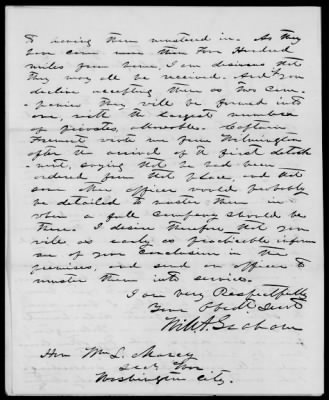 & having them mustered in. As they
have come more than two Hundred
miles from home, I am desirous that
they may all be received. And if you
decline accepting them as two Com-
panies they will be formed into
one, with the largest number
of privates, allowable. Captain
Fremont wrote me from Wilmington
after the arrival of the first detach-
ment, saying that he had been
ordered from that place, and that
some other officer would probably
be detailed to muster them in
when a full Company should be
there. I desire therefore that you
will as early as practicable inform
me of your Conclusion in the
premises, and send an officer to
muster them into service.
I am very Respectfully
Your Obedt Servt
Will. A. Graham
Hon Wm L. Marcy
Secy War
Washington City.